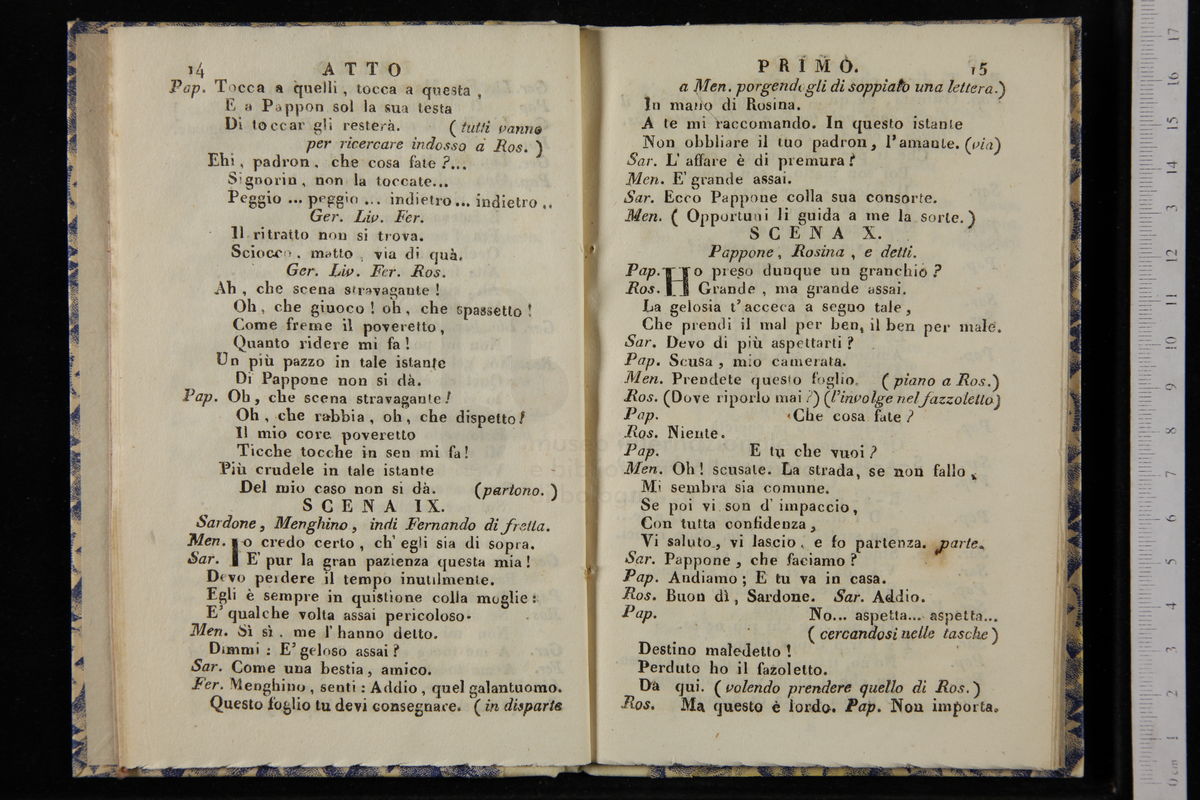 14 ATTO
Pap. Tocca a quelli, tocca a questa,
E a Pappon sol la sua testa
Di toccar gli resterà. (tutti vanno
per ricercare indosso a Ros.)
Ehi, padron, che cosa fate?...
Signorin, non la toccate...
Peggio ... peggio ... indietro ... indietro ..
Ger. Liv. Fer.
Il ritratto non si trova.
Sciocco, matto, via di quà.
Ger. Liv. Fer. Ros.
Ah, che scena stravagante!
Oh, che giuoco! oh, che spassetto!
Come freme il poveretto,
Quanto ridere mi fa!
Un più pazzo in tale istante
Di Pappone non si dà.
Pap. Oh, che scena stravagante!
Oh, che rabbia, oh, che dispetto!
Il mio core poveretto
Ticche tocche in sen mi fa!
Più crudele in tale istante
Del mio caso non si dà. (partono.)
SCENA IX.
Sardone, Menghino, indi Fernando di fretta.
Men. Io credo certo, ch' egli sia di sopra.
Sar. E' pur la gran pazienza questa mia!
Devo perdere il tempo inutilmente.
Egli è sempre in quistione colla moglie:
E' qualche volta assai pericoloso.
Men. Sì sì, me l' hanno detto.
Dimmi: E' geloso assai?
Sar. Come una bestia, amico.
Fer. Menghino, senti: Addio, quel galantuomo.
Questo foglio tu devi consegnare. (in disparte
PRIMO. 15
a Men. porgendogli di soppiato una lettera.)
In mano di Rosina.
A te mi raccomando. In questo istante
Non obbliare il tuo padron, l'amante. (via)
Sar. L' affare è di premura?
Men. E' grande assai.
Sar. Ecco Pappone colla sua consorte.
Men. (Opportuni li guida a me la sorte.)
SCENA X.
Pappone, Rosina, e detti.
Pap. Ho preso dunque un granchio?
Ros. Grande, ma grande assai.
La gelosia t'acceca a segno tale,
Che prendi il mal per ben, il ben per male.
Sar. Devo di più aspettarti?
Pap. Scusa, mio camerata.
Men. Prendete questo foglio. (piano a Ros.)
Ros. (Dove riporlo mai?) (l'involge nel fazzoletto)
Pap. Che cosa fate?
Ros. Niente.
Pap. E tu che vuoi?
Men. Oh! scusate. La strada, se non fallo,
Mi sembra sia comune.
Se poi vi son d' impaccio,
Con tutta confidenza,
Vi saluto, vi lascio, e fo partenza. parte.
Sar. Pappone, che faciamo?
Pap. Andiamo; E tu va in casa.
Ros. Buon dì, Sardone. Sar. Addio.
Pap. No... aspetta... aspetta...
(cercandosi nelle tasche)
Destino maledetto!
Perduto ho il fazoletto.
Dà qui. (volendo prendere quello di Ros.)
Ros. Ma questo è lordo. Pap. Non importa.